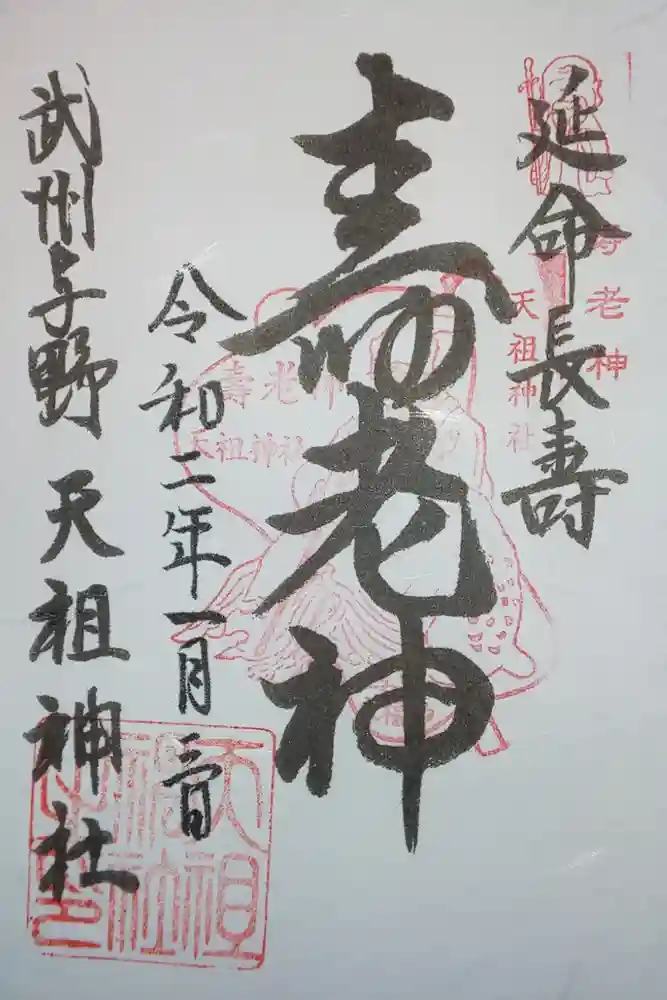 延命長壽
壽老神
令和二年一月三日
武州与野 天祖神社
寿老神
天祖神社
壽老神
天祖神社
天祖神社之印